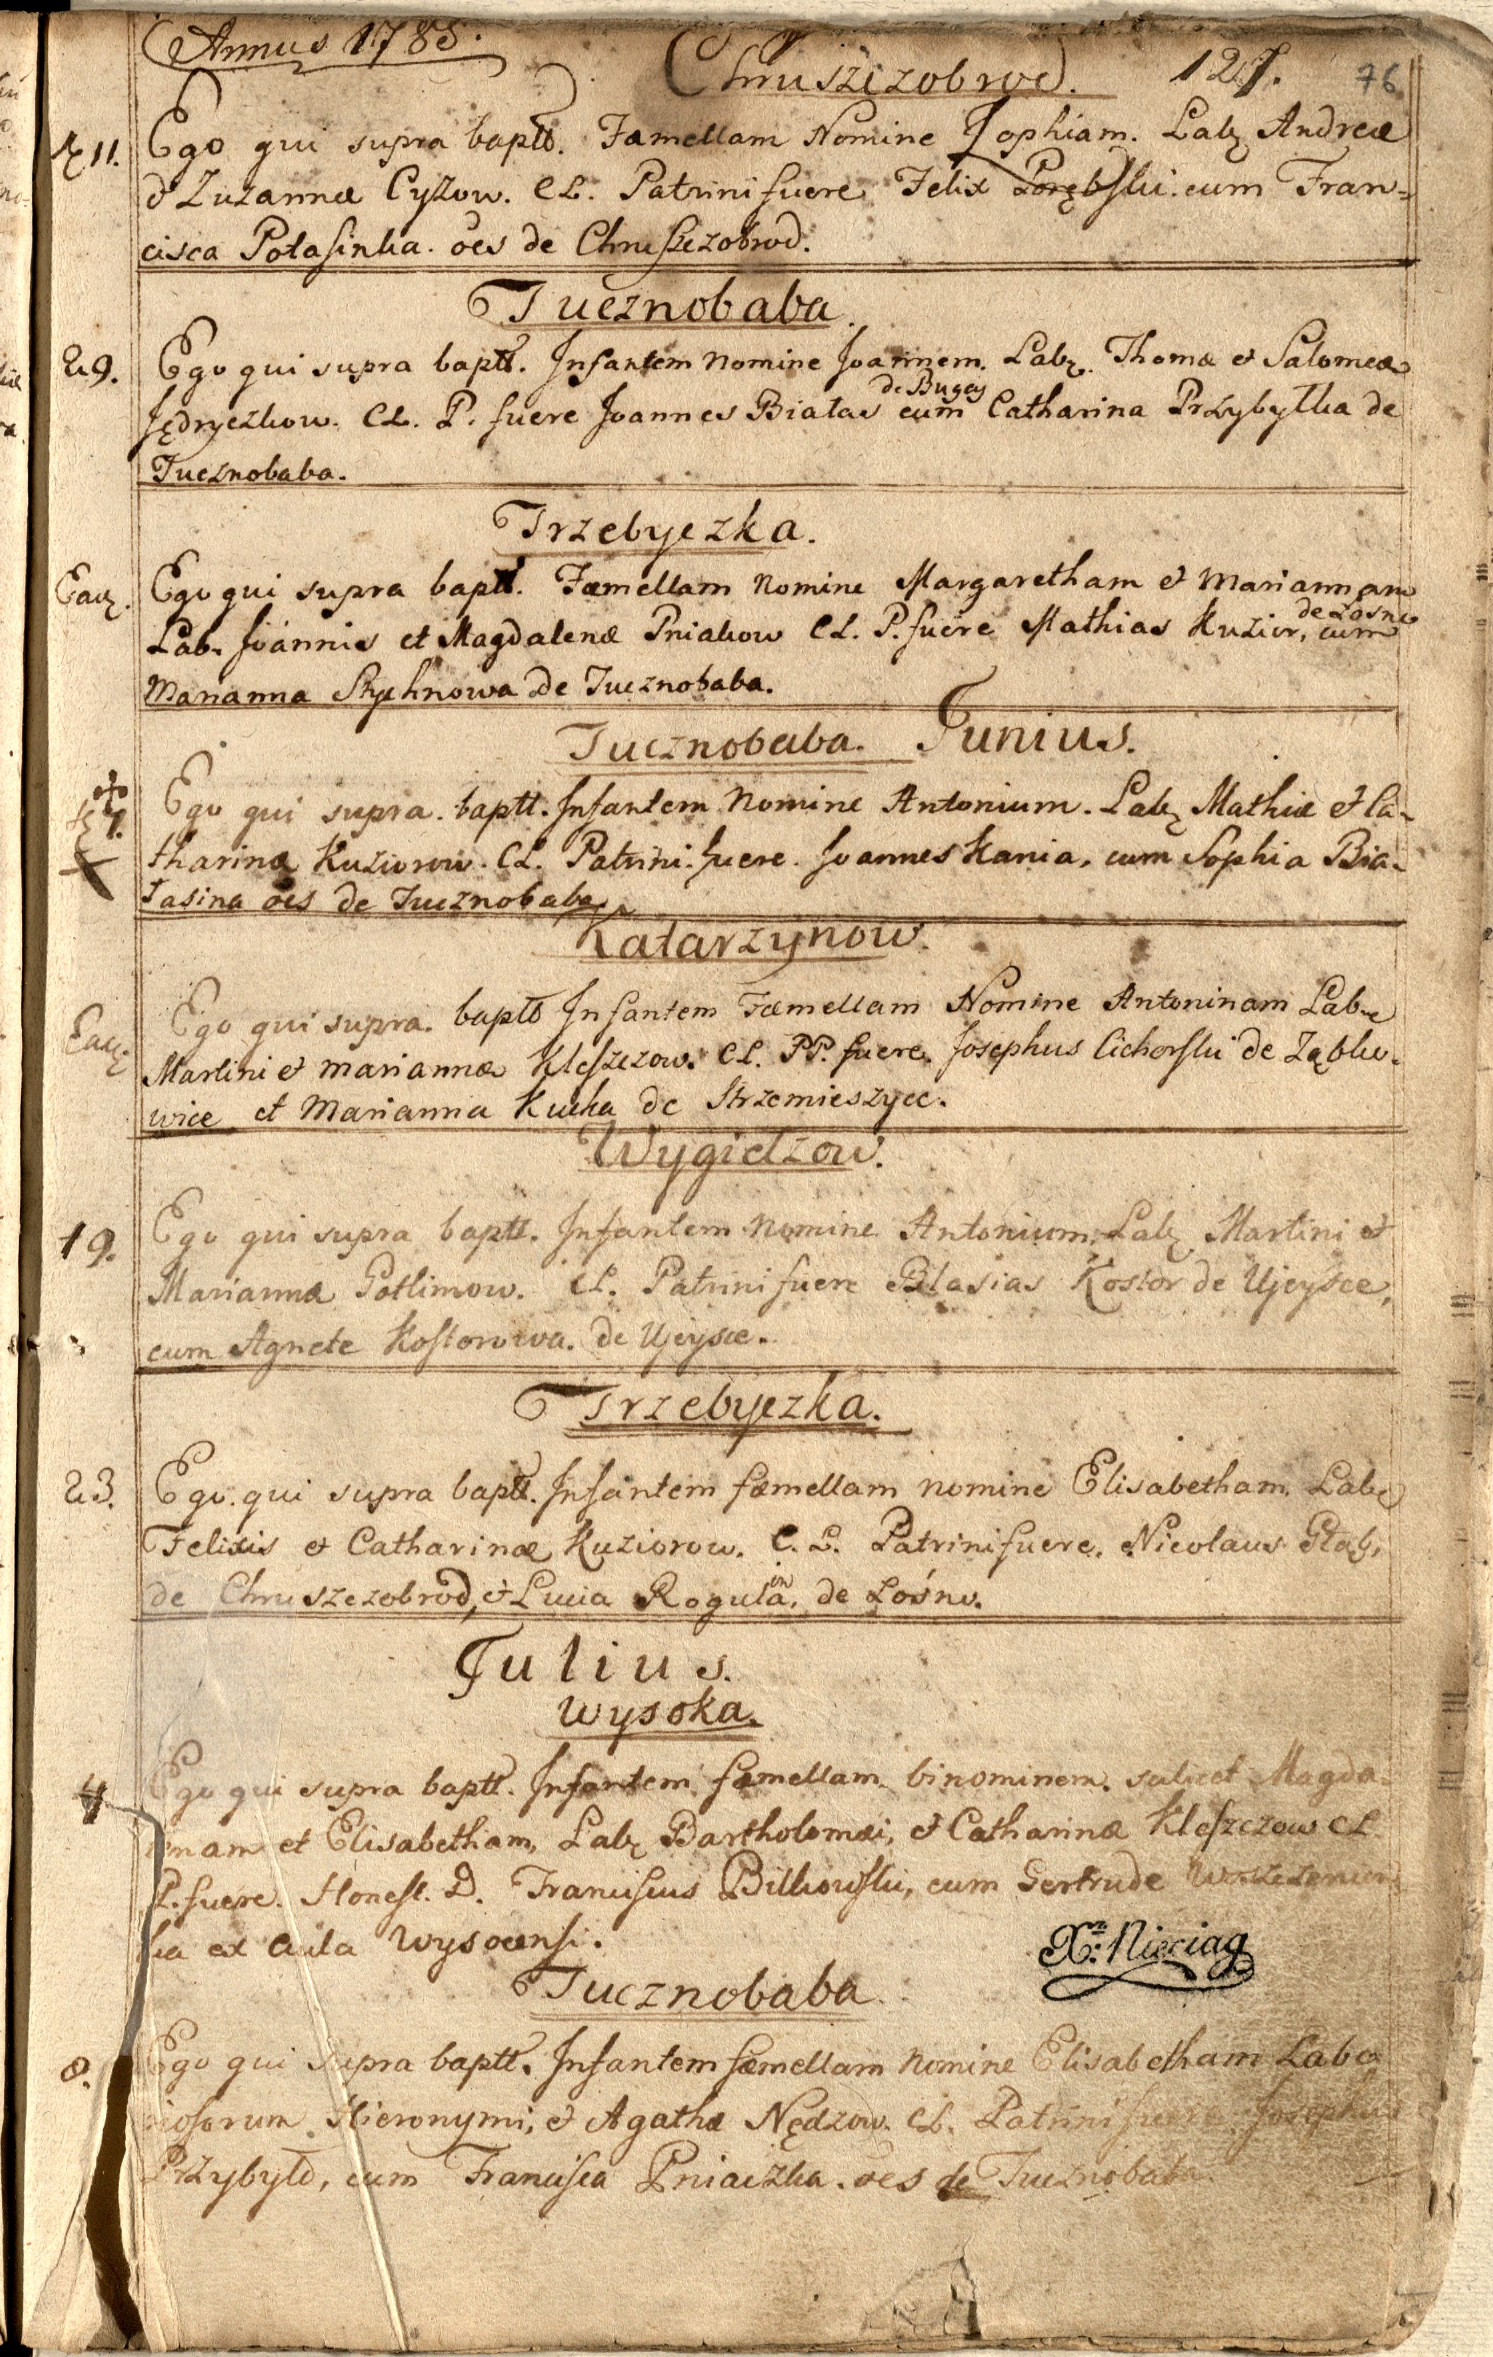 Annus 1785.
Chruszczobrod. 127. 76
11. Ego qui supra baptt. Fæmellam Nomine Sophiam. Lab. Andreæ
et Zuzannæ Cyzow. CL. Patrini fuere Felix Porębski cum Fran-
cisca Potasinka. oes de Chruszczobrod.
Tucznobaba.
29. Ego qui supra baptt. Infantem Nomine Joannem. Lab. Thomæ et Salomeæ
de Bugay
Jędryczkow. CL. P. fuere Joannes Białas cum Catharina Przybyłka de
Tucznobaba.
Trzebyczka.
Ead. Ego qui supra baptt. Fæmellam Nomine Margaretham et Mariannam
de Łośno
Lab. Joannis et Magdalenæ Pniakow CL. P. fuere Mathias Kuzior, cum
Marianna Stychnowa de Tucznobaba.
Tucznobaba. Junius.
7. Ego qui supra. baptt. Infantem Nomine Antonium. Lab. Mathiæ et Ca-
tharinæ Kuziorow. CL. Patrini fuere. Joannes Kania, cum Sophia Bia-
łasina oes de Tucznobaba.
Katarzynow.
Ead. Ego qui supra. baptt Infantem Fæmellam Nomine Antoninam Lab.
Martini et Mariannæ Kleszczow. CL. PP. fuere. Josephus Cichorski de Ząbko-
wice et Marianna Kucka de Strzemieszyce.
Wygiełzow.
19. Ego qui supra baptt. Infantem Nomine Antonium, Lab. Martini et
Mariannæ Gotlimow. CL. Patrini fuere Blasias Kostor de Ujeysce,
cum Agnete Kostorowa. de Ujeysce.
Trzebyczka.
23. Ego qui supra baptt. Infantem fæmellam nomine Elisabetham. Lab.
Felixis et Catharinæ Kuziorow. C. L. Patrini fuere. Nicolaus Głab,
de Chruszczobrod, et Lucia Rogula, de Łośno.
Julius.
Wysoka.
4 Ego qui supra baptt. Infantem fæmellam binominem. scilicet Magda-
lenam et Elisabetham, Lab. Bartholomæi, et Catharinæ Kleszczow CL
P. fuere. Honest. D. Franciscus Bilkowski, cum Gertrude
ka ex Aula Wysocensi.
X. Nieciag
Tucznobaba.
8. Ego qui supra baptt. Infantem fæmellam Nomine Elisabetham Labo
riosorum Hieronymi, et Agathæ Nędzow. CL. Patrini fuere Josephus
Przybyło, cum Francisca Pniaczka. oes de Tucznobaba